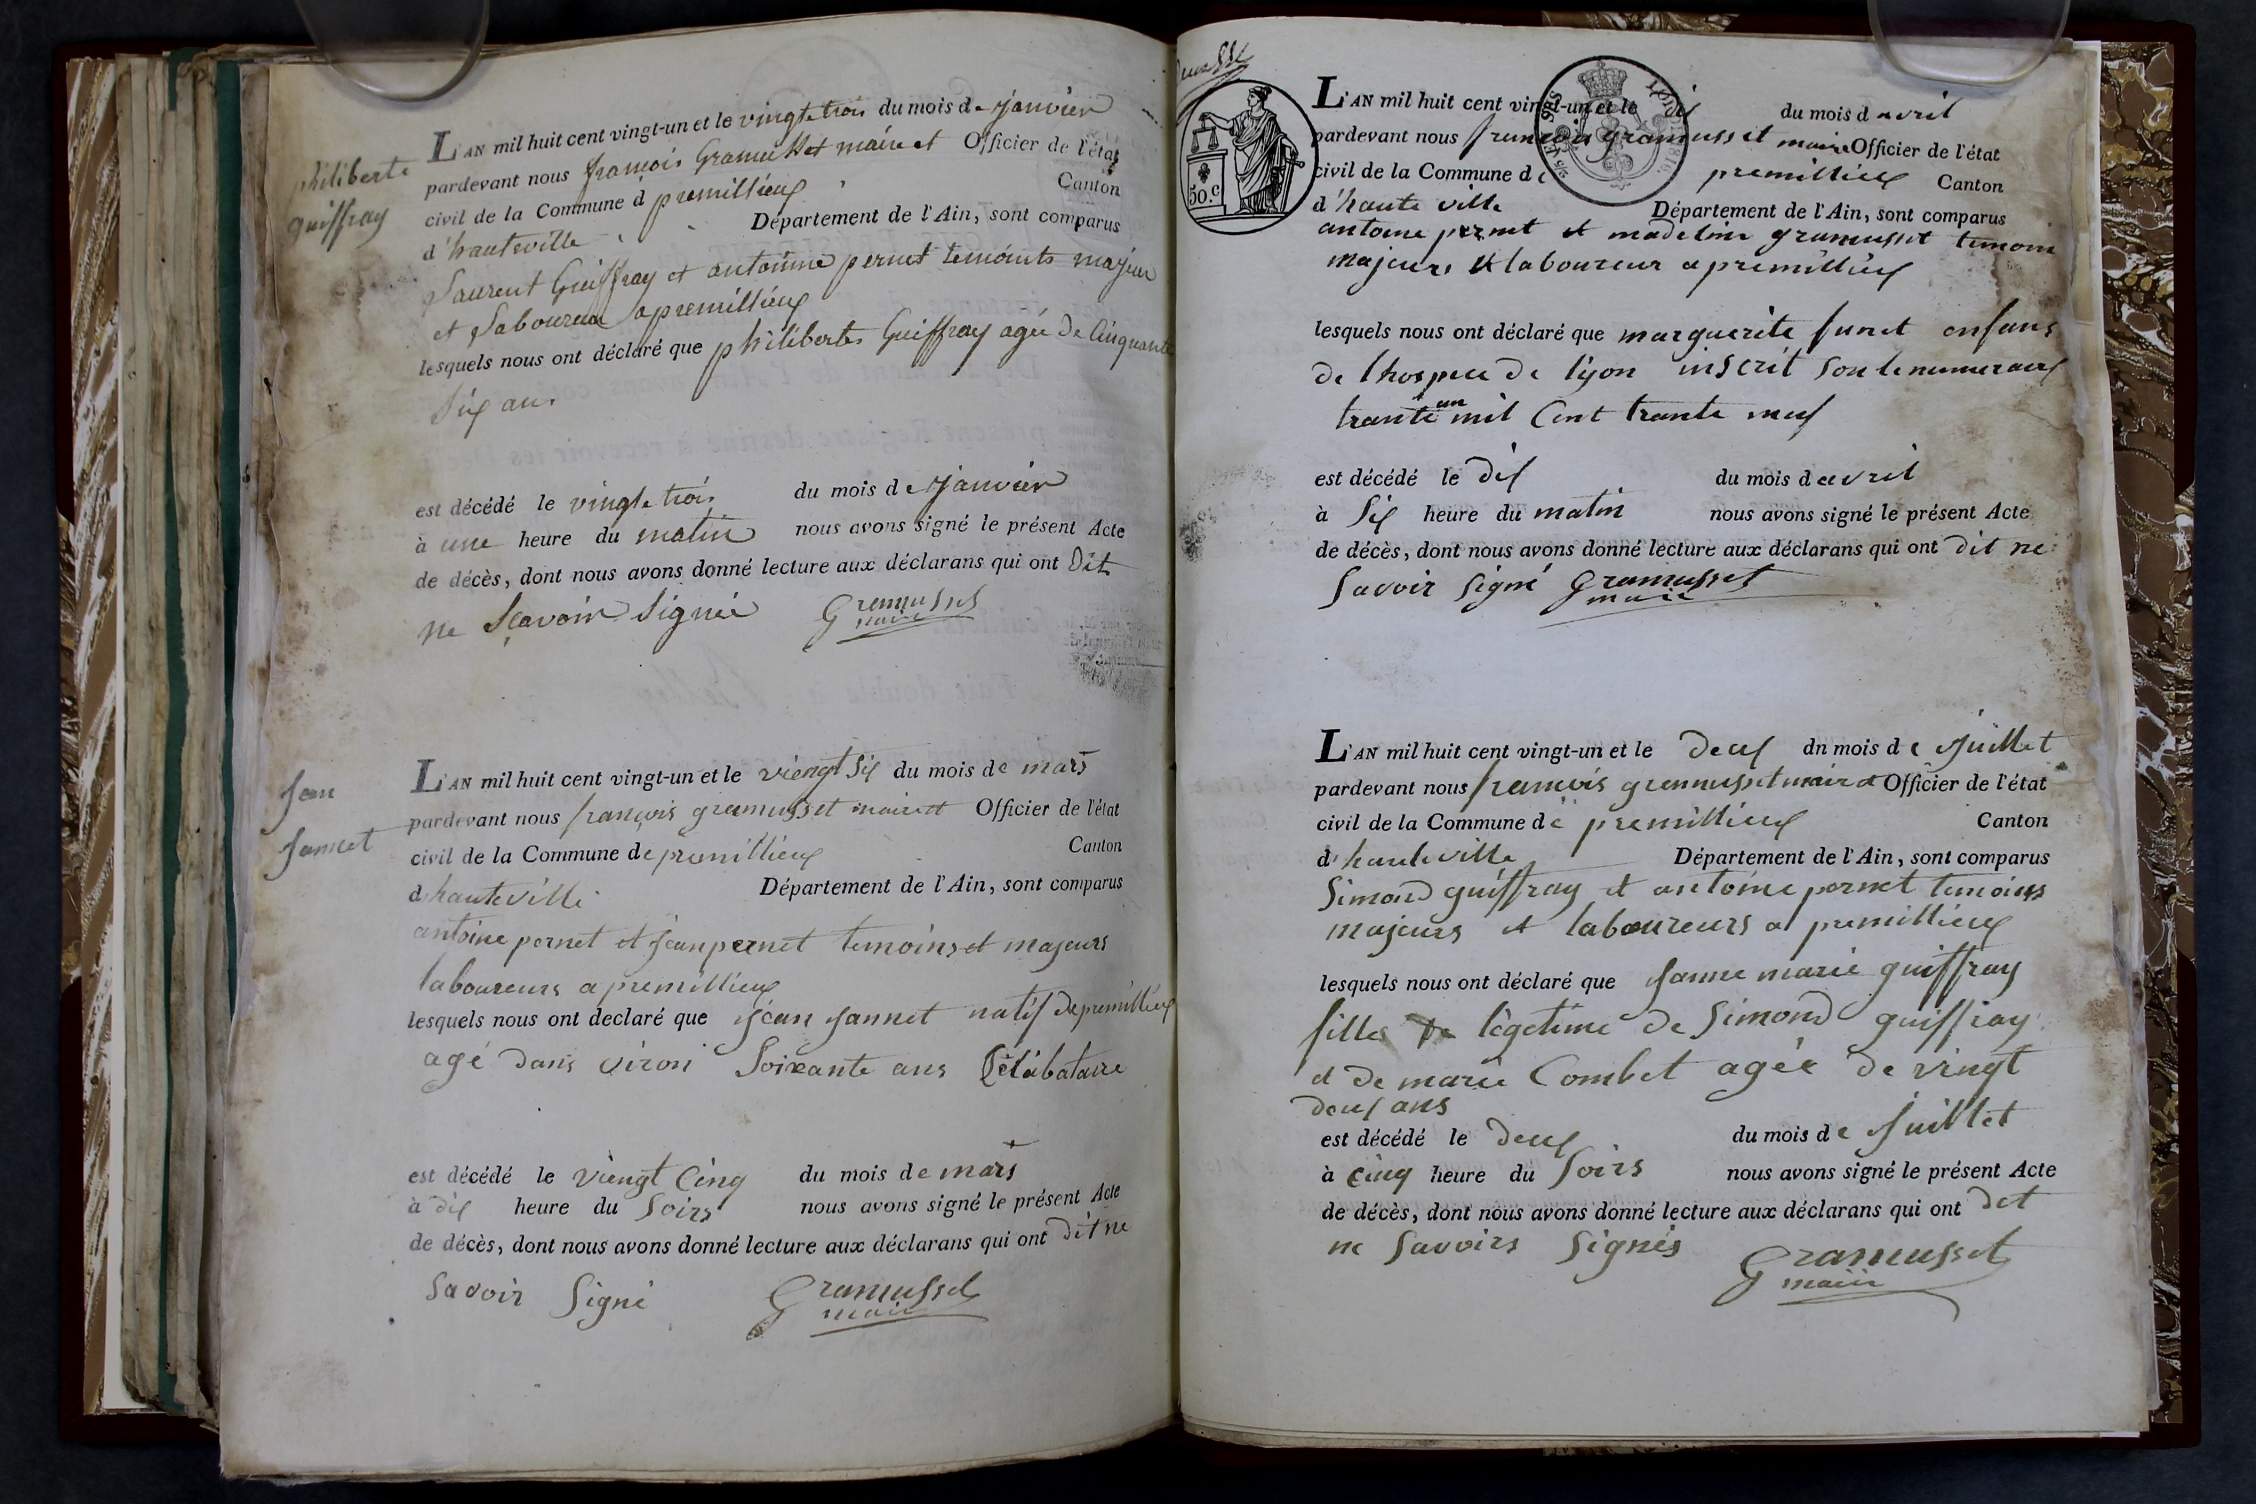 philiberte
guiffray
L'AN mil huit cent vingt-un et le vingt trois du mois de janvier
pardevant nous françois Gramusset maire et Officier de l'état
civil de la Commune d premillieux Canton
d'hauteville Département de l'Ain, sont comparus
Laurent Guiffray et antoinne pernet temoints majeur
et Laboureur a premillieux
lesquels nous ont déclaré que philiberte Guiffray agée de Cinquante
Six ans
est décédé le vingte trois du mois de janvier
à une heure du matin nous avons signé le présent Acte
de décès, dont nous avons donné lecture aux déclarans qui ont Dit
ne Sçavoir Signée Gramusset
maire
jean
jannet
L'AN mil huit cent vingt-un et le viengt six du mois de mars
pardevant nous françois gramusset maire et Officier de l'état
civil de la Commune de premillieux Canton
d'hauteville Département de l'Ain, sont comparus
antoine pernet et jean pernet temoins et majeurs
laboureurs a premillieux
lesquels nous ont declaré que jean jannet natif de premillieux
agé dans viron Soixante ans Celabataire
est décédé le viengt Cinq du mois de mars
à dix heure du Soirs nous avons signé le présent Acte
de décès, dont nous avons donné lecture aux déclarans qui ont dit ne
Savoir Signé Gramusset
maire
50.c
L'AN mil huit cent vingt-un et le dix du mois d avril
pardevant nous francois gramusset maire Officier de l'état
civil de la Commune de premillieux Canton
d'haute ville Département de l'Ain, sont comparus
antoine pernet et madeline gramusset temoin
majeurs et laboureur a premillieux
lesquels nous ont déclaré que marguerite funet enfans
de lhospice de lyon inscrit sou le numeraux
trante un mil Cent trante neuf
est décédé le dix du mois d avril
à Six heure du matin nous avons signé le présent Acte
de décès, dont nous avons donné lecture aux déclarans qui ont dit ne
Savoir Signé Gramusset
maire
L'AN mil huit cent vingt-un et le deux dn mois de juillet
pardevant nous francois gramusset maire et Officier de l'état
civil de la Commune de premillieux Canton
d'hauteville Département de l'Ain, sont comparus
Simond guiffray et antoine pernet temoins
majeurs et laboureurs a premillieux
lesquels nous ont déclaré que janne marie guiffray
fille legetime de Simond guiffray
et de marie Combet agée de vingt
deux ans
est décédé le deux du mois de juillet
à cinq heure du Soirs nous avons signé le présent Acte
de décès, dont nous avons donné lecture aux déclarans qui ont det
ne Savoirs Signés Gramusset
maire